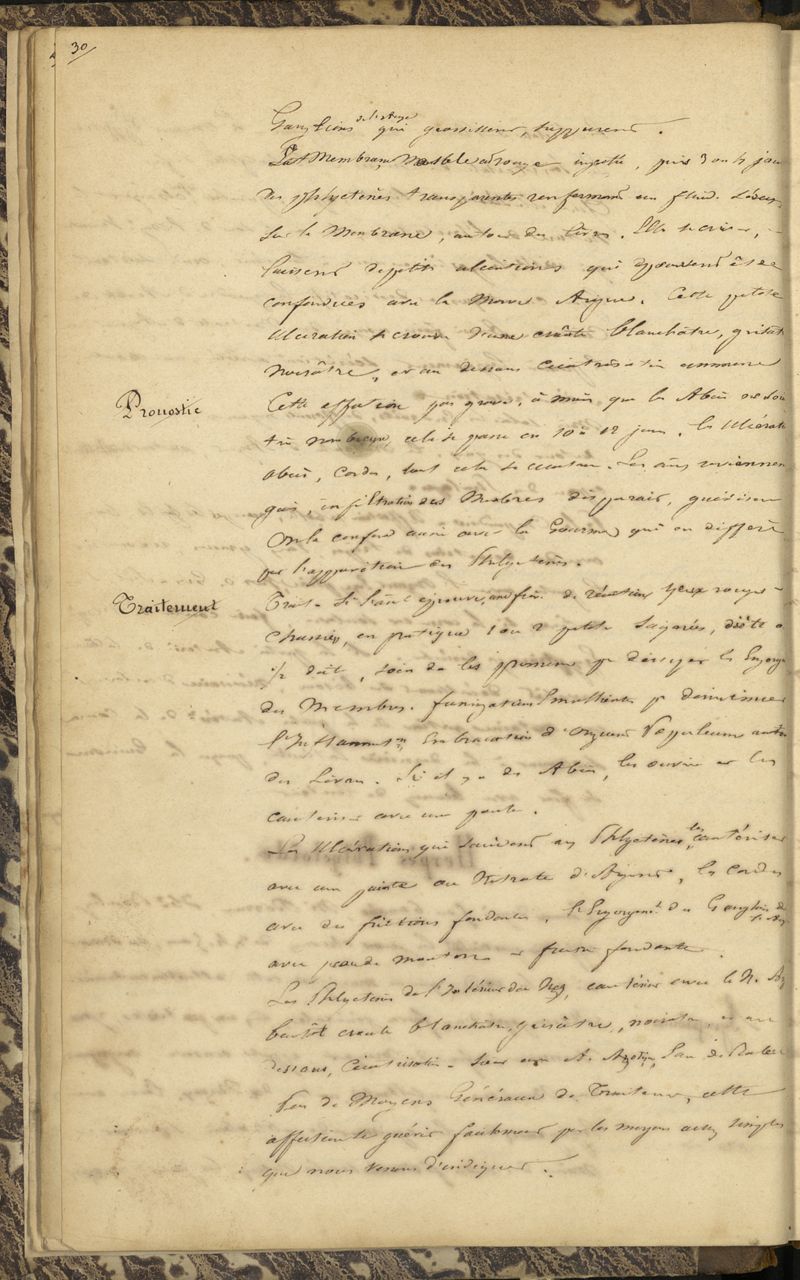 30
de l'auge
Ganglions qui grossissent, suppurent.
La Membrane Nasale rouge injectée, puis 3 ou 4 jours
des phlyctènes transparentes renfermant un fluide
sur la Membrane, autour des lèvres. Elle se crève,
laissent de petites ulcérations qui pourraient être
confondues avec la Morve Aigue. Cette petite
Ulcération se couvre d'une croûte blanchâtre, grisâtre
noirâtre, et au dessous Cicatrisation
Pronostic
Cette affection pas grave, à moins que les Abcès ne soient
très nombreux, cela se passe en 10 à 12 jours. Les Ulcérations
abcès, Cordes, tout cela se cicatrise. Les reviennent
gais, infiltration des Membres disparait, guérison
On la confond aussi avec la Gourme qui en diffère
par l'apparition des Phlyctènes.
Traitement
Trait. Si l'animal éprouve une fièvre de réaction yeux rouges
Chassieux, on pratique 1 ou 2 petites Saignées, diète a
1/2 diète, soin de les promener pr dissiper les Engorg
des Membres. fumigations Emollientes pr diminuer
l'Inflammatn, Embrocation d'onguent Populeum autour
des Lèvres. Si il y a des Abcès, les ouvrir et les
cautériser avec une pointe.
Les Ulcérations qui suivent aux Phlyctènes les cautériser
avec une pointe au Nitrate d'Argent, les Cordes
avec des frictions fondantes, l'Engorgemt des Ganglions de
l'Auge
avec peau de mouton et friction fondante.
Les Phlyctènes de l'Intérieur du Nez, cautériser avec le N. Ag
bientôt croute blanchâtre, grisâtre, noirâtre, et au
dessous, Cicatrisation. Eau de Rabel
Peu de Moyens Généraux de Traitement, cette
affection se guérit facilement par les moyens assez simples
que nous venons d'indiquer.